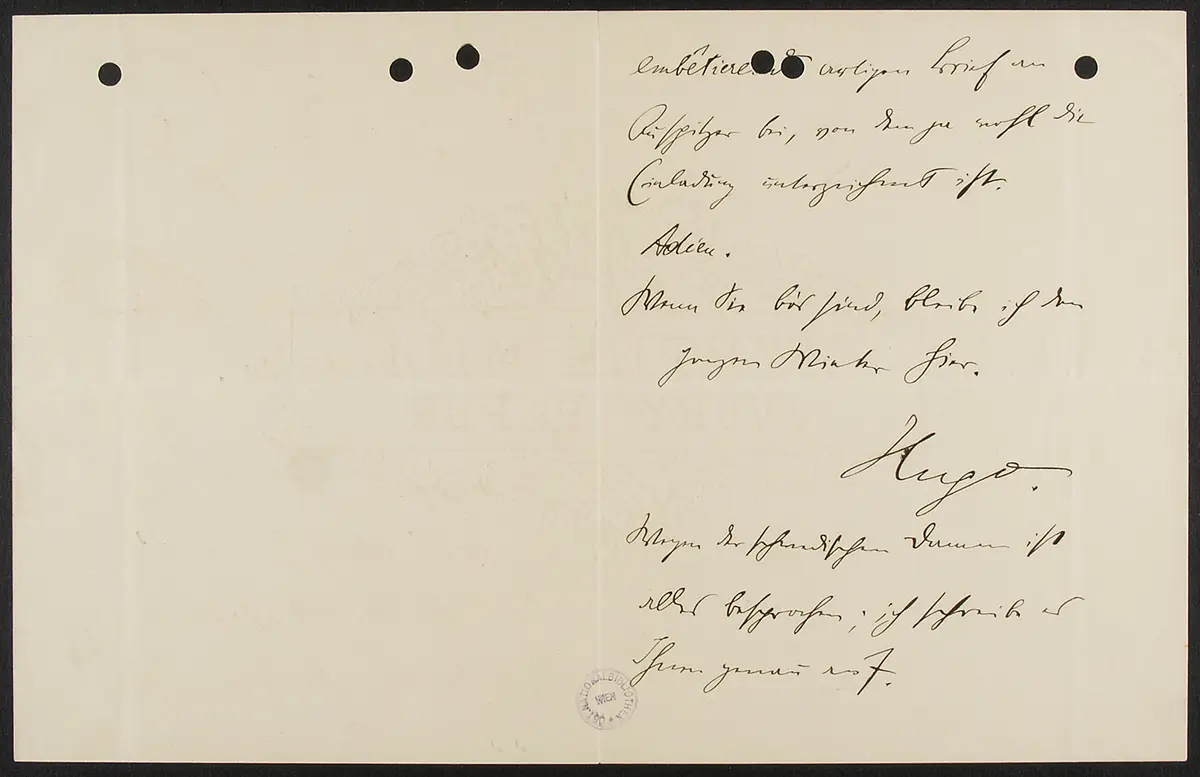 embêtierend artigen Brief an
Auspitzer bei, von dem ja wohl die
Einladung unterzeichnet ist.
Adieu.
Wenn Sie bös sind, bleibe ich den
ganzen Winter hier.
Hugo.
Wegen der schwedischen Damen ist
alles besprochen; ich schreibe es
Ihnen genau auf.
ÖST. NATIONALBIBLIOTHEK
WIEN